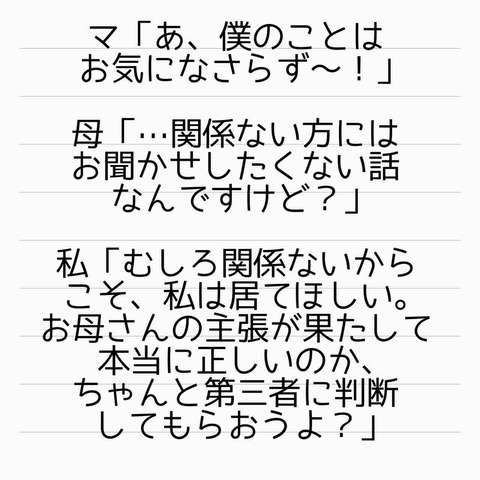 マ「あ、僕のことは
お気になさらず〜！」
母「…関係ない方には
お聞かせしたくない話
なんですけど？」
私「むしろ関係ないから
こそ、私は居てほしい。
お母さんの主張が果たして
本当に正しいのか、
ちゃんと第三者に判断
してもらおうよ？」